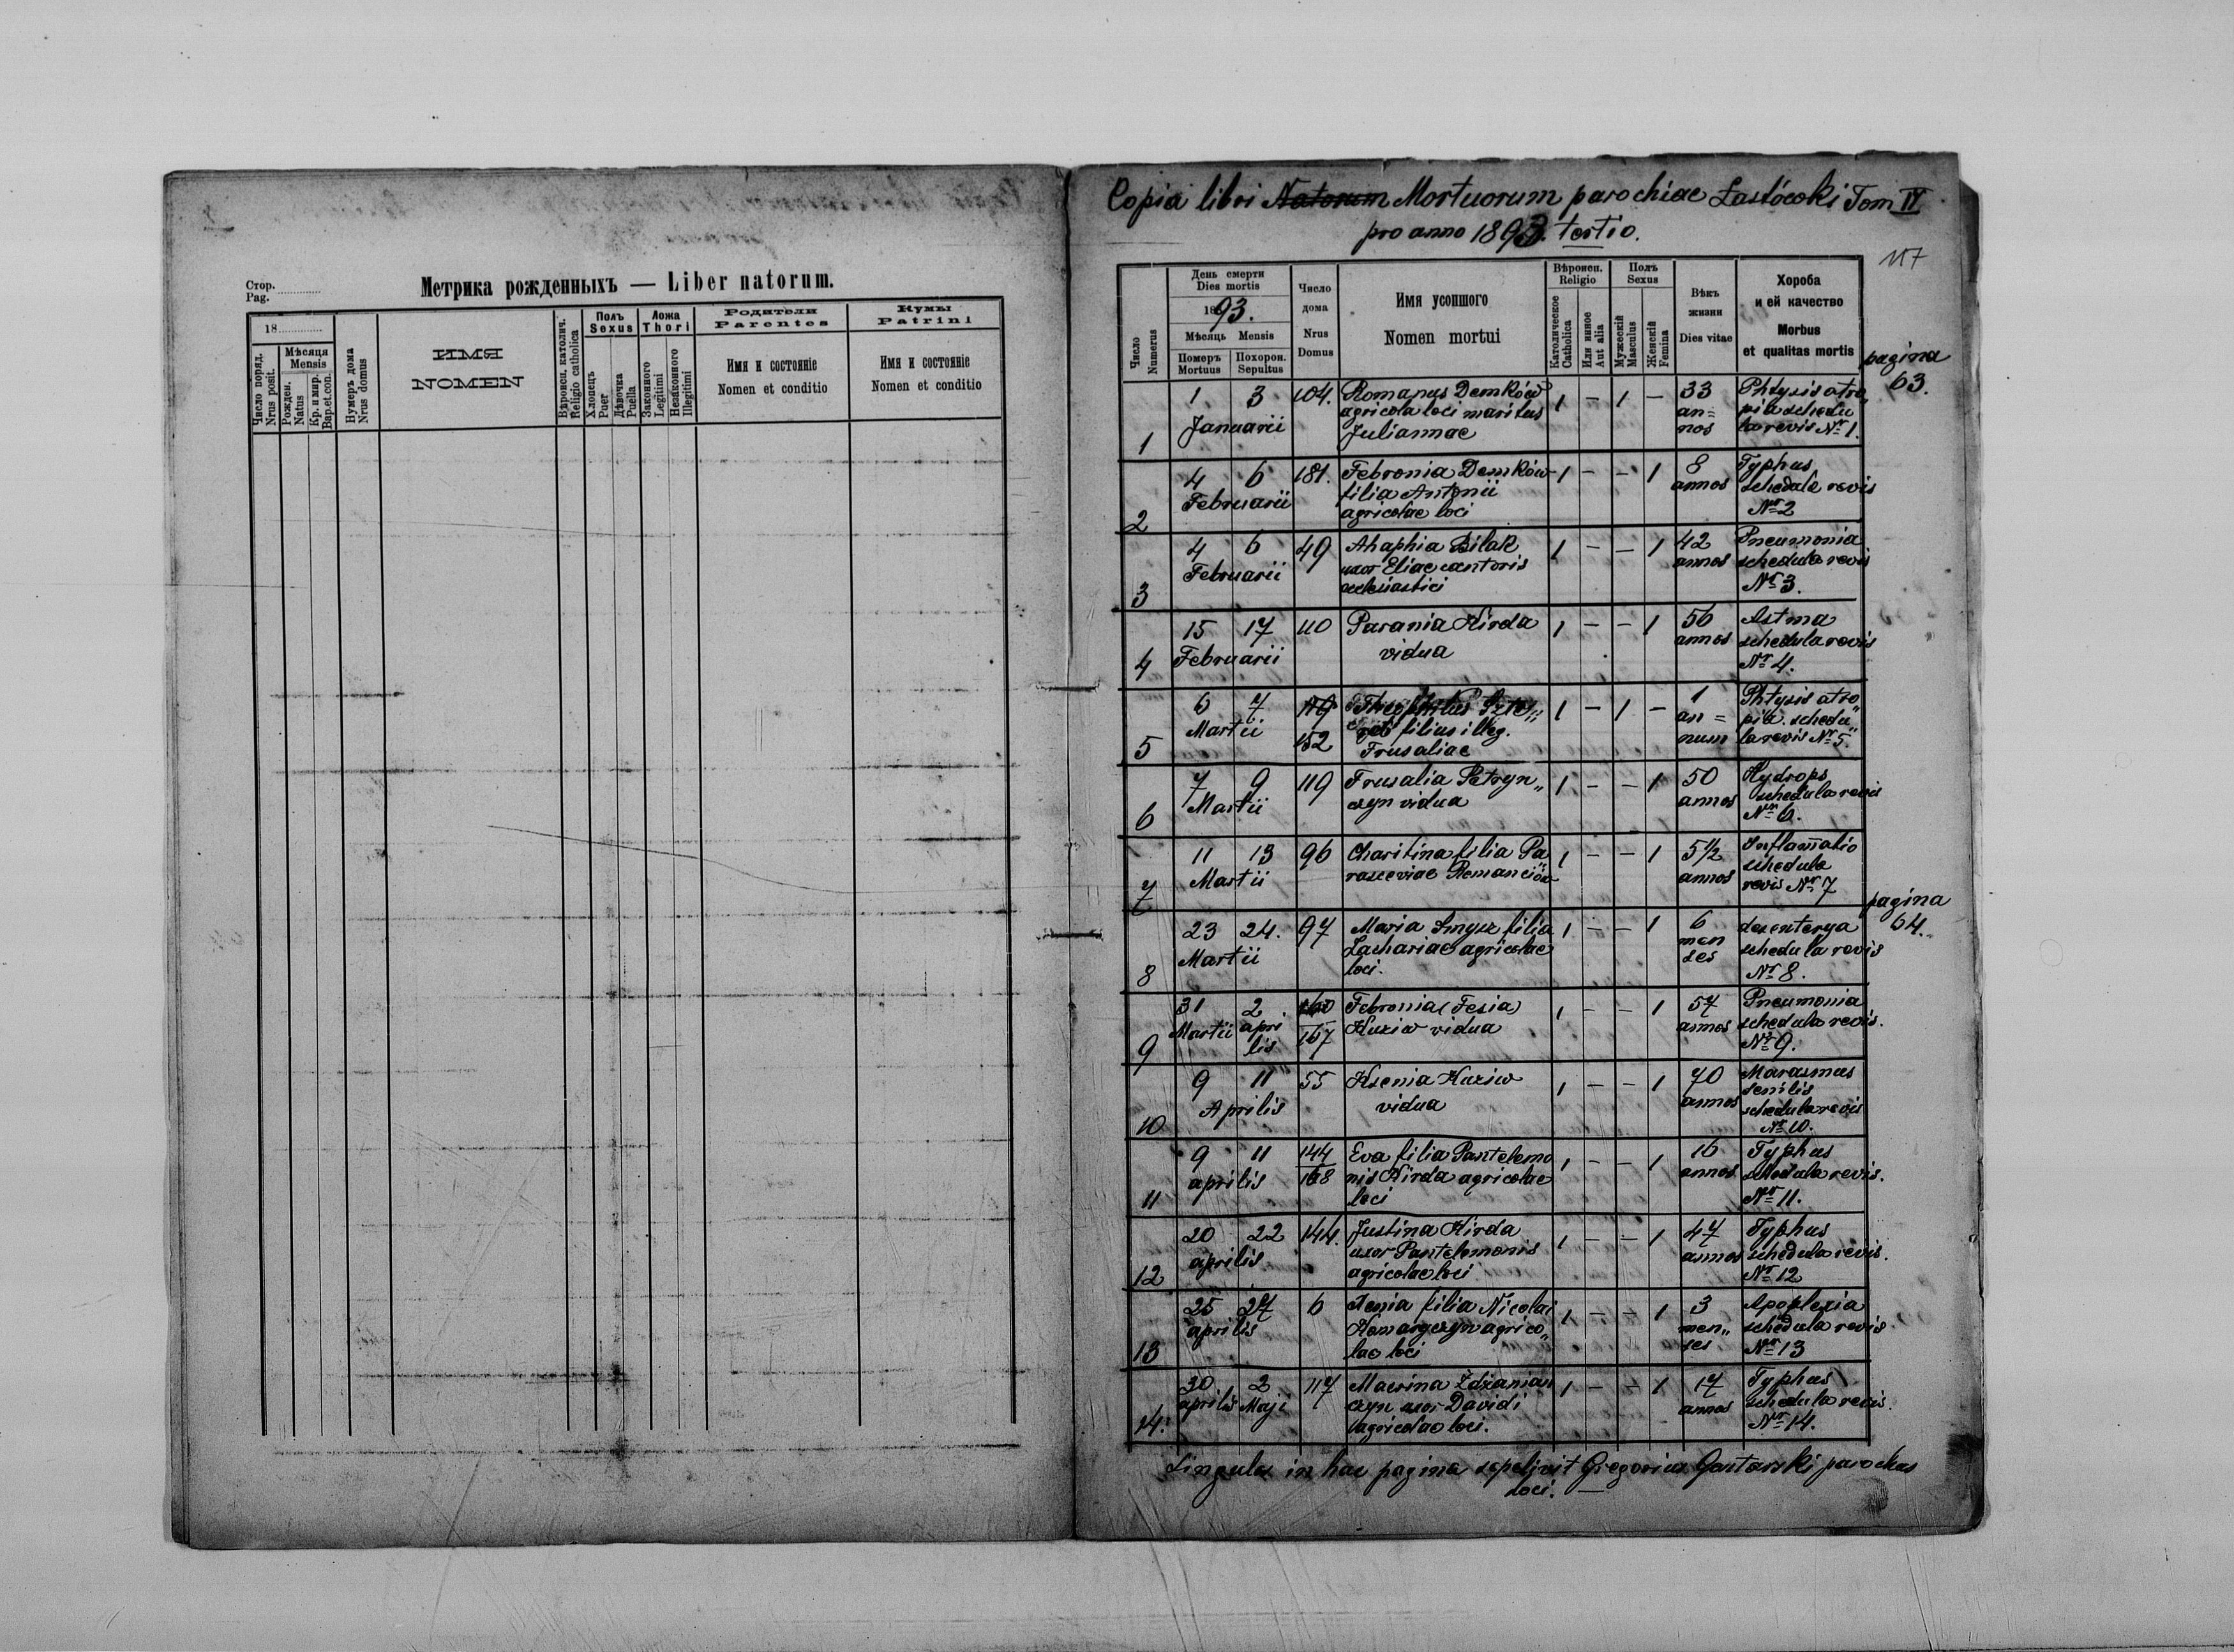 Стор.
Pag.
Метрика рожденныхъ — Liber natorum.
18
Число поряд.
Nrus posit.
Мѣсяця
Mensis
Рожден.
Natus
Кр. и мир.
Bap.et.con.
Нумеръ дома
Nrus domus
ИМЯ
NOMEN
Вѣроисп. католич.
Religio catholica
Полъ
Sexus
Хлопець
Puer
Дѣвочка
Puella
Ложа
Thori
Законного
Legitimi
Незаконного
Illegitimi
Родители
Parentes
Имя и состояніе
Nomen et conditio
Кумы
Patrini
Имя и состояніе
Nomen et conditio
Copia libri Natorum Mortuorum parochiae Łastówki Tom IV
pro anno 1893. tertio.
117
Число
Numerus
День смерти
Dies mortis
1893.
Мѣсяць Mensis
Померъ
Mortuus
Похорон.
Sepultus
Число
дома
Nrus
Domus
Имя усопшого
Nomen mortui
Вѣроисп.
Religio
Католическое
Catholica
Или инное
Aut alia
Полъ
Sexus
Мужескій
Masculus
Женскій
Femina
Вѣкъ
жизни
Dies vitae
Хороба
и ей качество
Morbus
et qualitas mortis
pagina
63.
1 3 104. Romanus Demków 1 – 1 – 33 Phtysis atro„
Januarii agricola loci maritus an= pia schedu
1 Juliannae nos la revis Nr 1.
4 6 181. Febronia Demków 1 – – 1 8 Typhus
Februarii filia Antonii annos schedula revis
2 agricolae loci Nr 2
4 6 49 Ahaphia Bilak 1 – – 1 42 Pneumonia
Februarii uxor Eliae cantoris annos schedula revis
3 ecclesiastici Nr 3.
15 17 110 Parania Hirda 1 – – 1 56 Astma
4 Februarii vidua annos schedula revis
Nr 4.
6 7 Theophilus 1 – 1 – 1 Phtysis atro„
Martii filius illeg. an= pia schedu„
5 152 Frusaliae num la revis Nr 5.
7 9 119 Frusalia Petryn„ 1 – – 1 50 Hydrops
Martii czyn vidua annos schedula revis
6 Nr 6.
11 13 96 Charitina filia Pa„ 1 – – 1 5 1/2 Inflam̄atio
Martii rasceviae Romanciów annos schedula
7 revis Nr 7
pagina
64.
23 24. 97 Maria filia 1 – – 1 6 desenterya
Martii Zachariae agricolae men schedula revis
8 loci. ses Nr 8.
31 2 160 Febronia (Fesia) 1 – – 1 57 Pneumonia
Martii apri 167 Kuziw vidua annos schedula revis.
9 lis Nr 9.
9 11 55 Ksenia Kuziw 1 – – 1 70 Marasmus
Aprilis vidua annos senilis
schedula revis
10 Nr 10.
9 11 144 Eva filia Pantelemo 1 – – 1 16 Typhus
aprilis 168 nis Hirda agricolae annos schedula revis.
11 loci Nr 11.
20 22 144. Justina Hirda 1 – – 1 47 Typhus
aprilis uxor Pantelemonis annos schedula revis.
12 agricolae loci Nr 12
25 27 6 Xenia filia Nicolai 1 – – 1 3 Apoplexia
aprilis agrico„ men„ schedula revis
13 lae loci ses Nr 13
30 2 117 Macrina Zdzanian 1 – – 1 17 Typhus
aprilis Maji czyn uxor Davidi annos schedula revis.
14. agricolae loci. Nr 14.
Singulos in hac pagina sepelivit Gregorius parochus
loci.